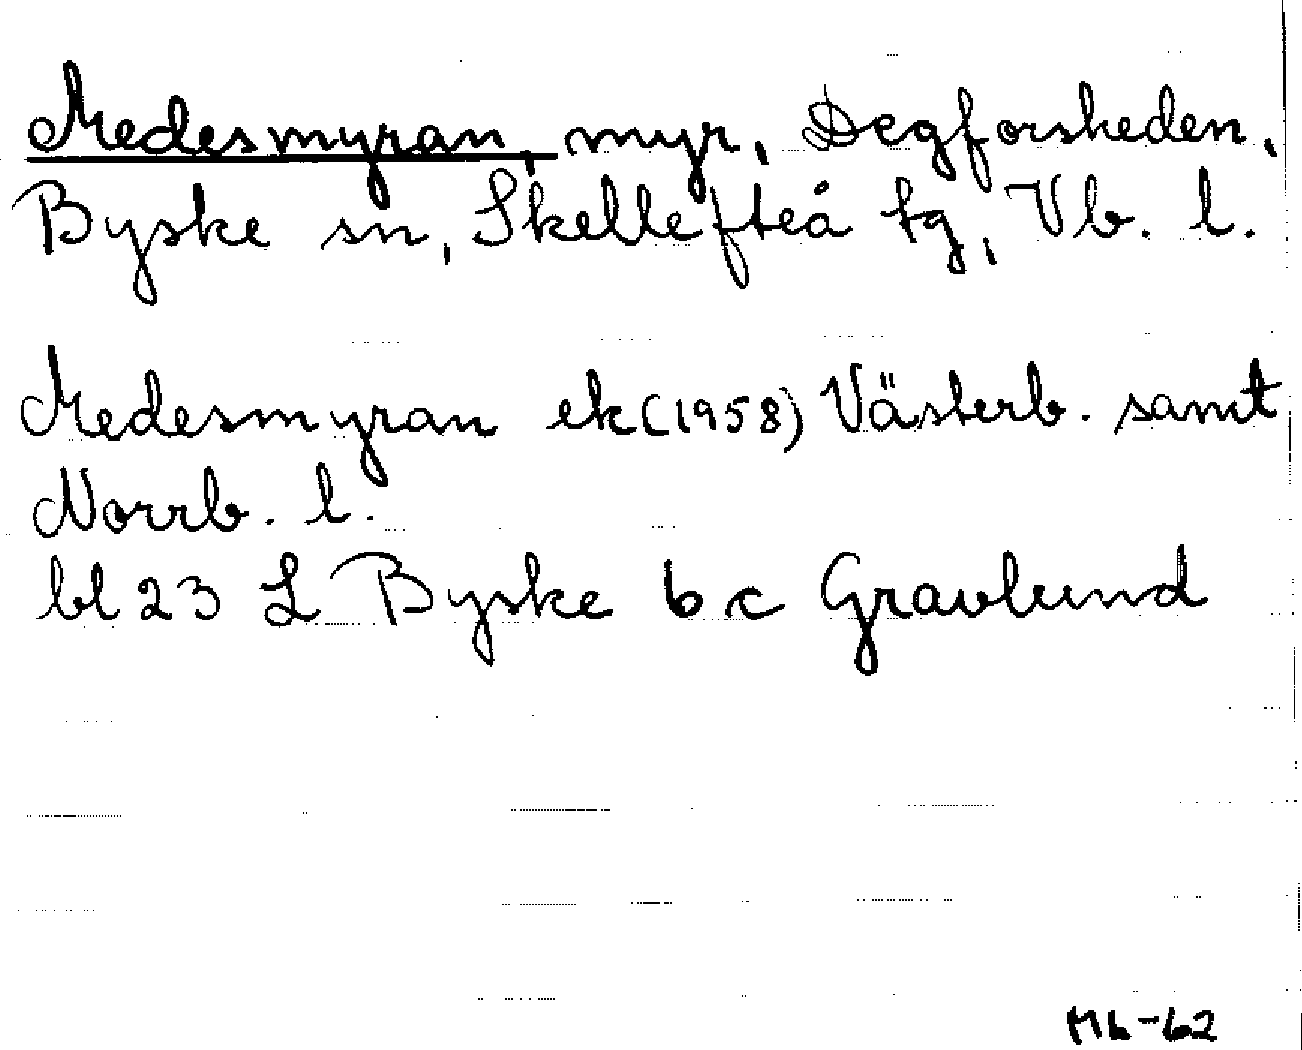 Medesmyran, myr, Degforsheden,
Byske sn, Skellefteå tg, Vb. l.
Medesmyran ek (1958) Västerb. samt
Norrb. l.
bl 23 L Byske b c Gravlund
Mb-62